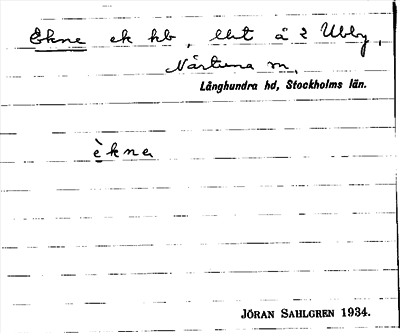 Ekne ek hb, lht å 2 Ubby,
Närtuna sn,
Långhundra hd, Stockholms län.
èkna
JÖRAN SAHLGREN 1934.